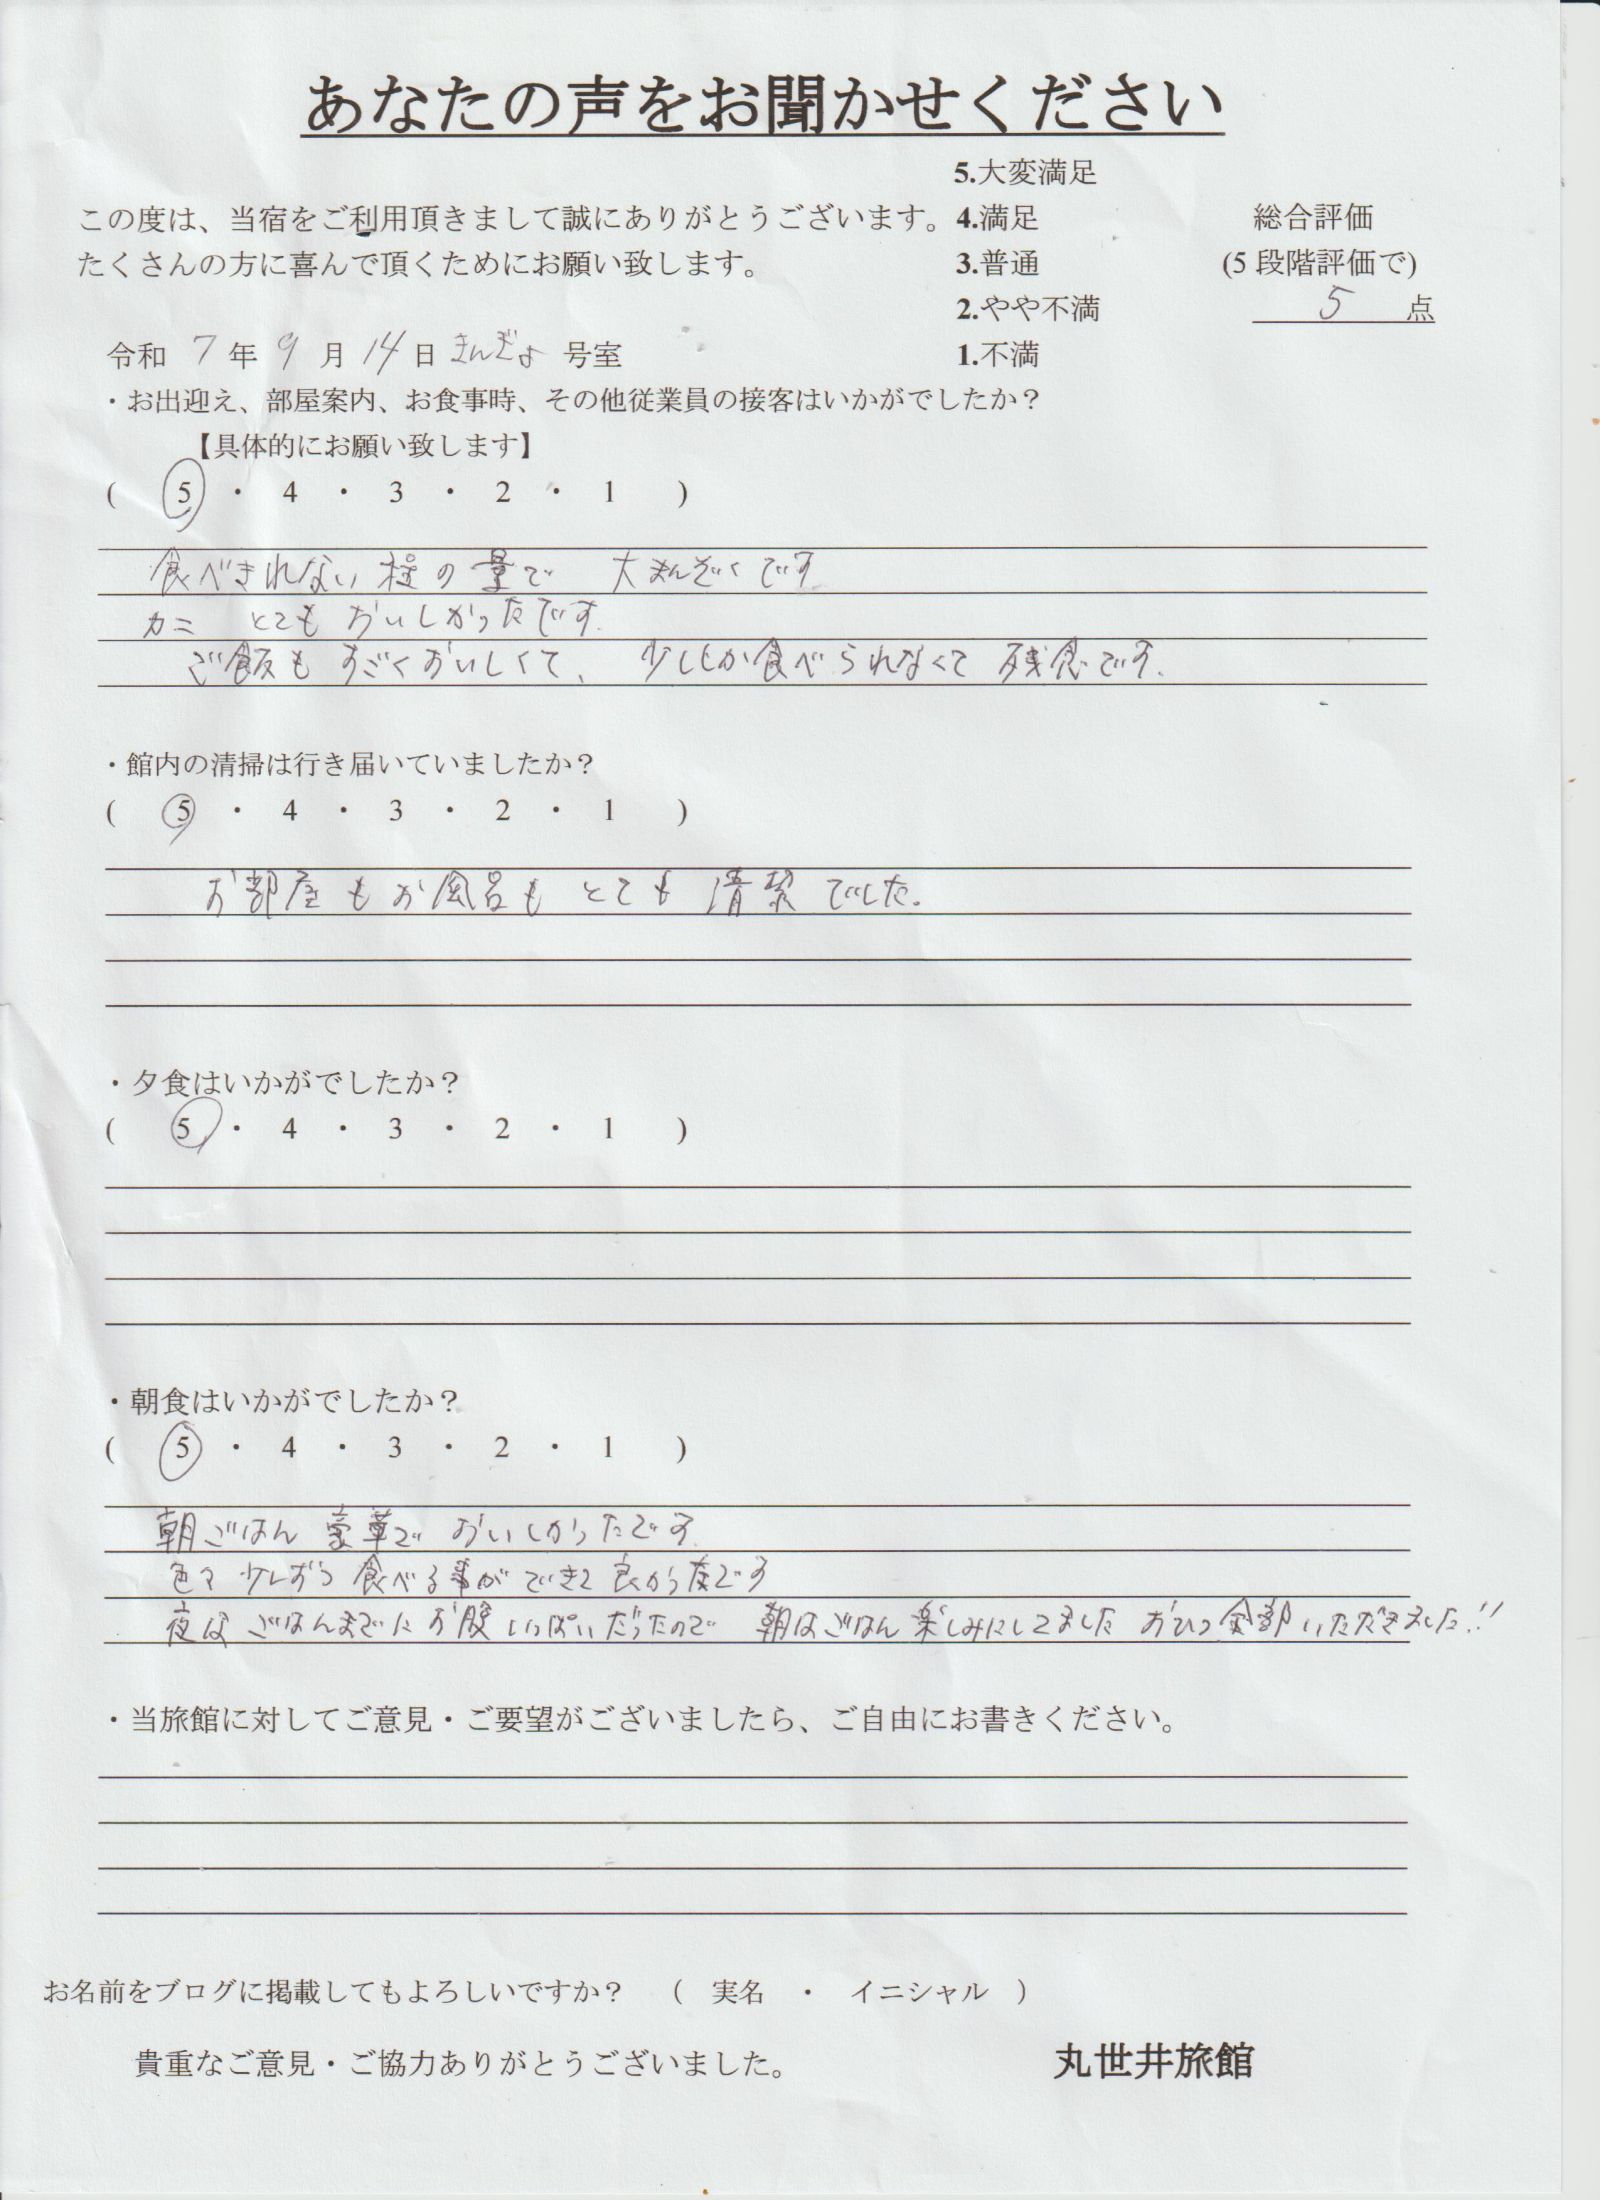 あなたの声をお聞かせください
5.大変満足
この度は、当宿をご利用頂きまして誠にありがとうございます。 4.満足 総合評価
たくさんの方に喜んで頂くためにお願い致します。 3.普通 (5段階評価で)
2.やや不満 5 点
令和 7 年 9 月 14 日 きんぎょ 号室 1.不満
・お出迎え、部屋案内、お食事時、その他従業員の接客はいかがでしたか？
【具体的にお願い致します】
( 5 ・ 4 ・ 3 ・ 2 ・ 1 )
食べきれない程の量で 大まんぞくです
カニ とても おいしかったです.
ご飯も すごくおいしくて、 少ししか食べられなくて 残念です.
・館内の清掃は行き届いていましたか？
( 5 ・ 4 ・ 3 ・ 2 ・ 1 )
お部屋もお風呂も とても 清潔 でした.
・夕食はいかがでしたか？
( 5 ・ 4 ・ 3 ・ 2 ・ 1 )
・朝食はいかがでしたか？
( 5 ・ 4 ・ 3 ・ 2 ・ 1 )
朝ごはん 豪華で おいしかったです.
色々 少しずつ 食べる事ができて 良かったです
夜は ごはんまでにお腹いっぱいだったので 朝はごはん楽しみにしてました おひつ全部いただきました!!
・当旅館に対してご意見・ご要望がございましたら、ご自由にお書きください。
お名前をブログに掲載してもよろしいですか？ ( 実名 ・ イニシャル )
貴重なご意見・ご協力ありがとうございました。 丸世井旅館